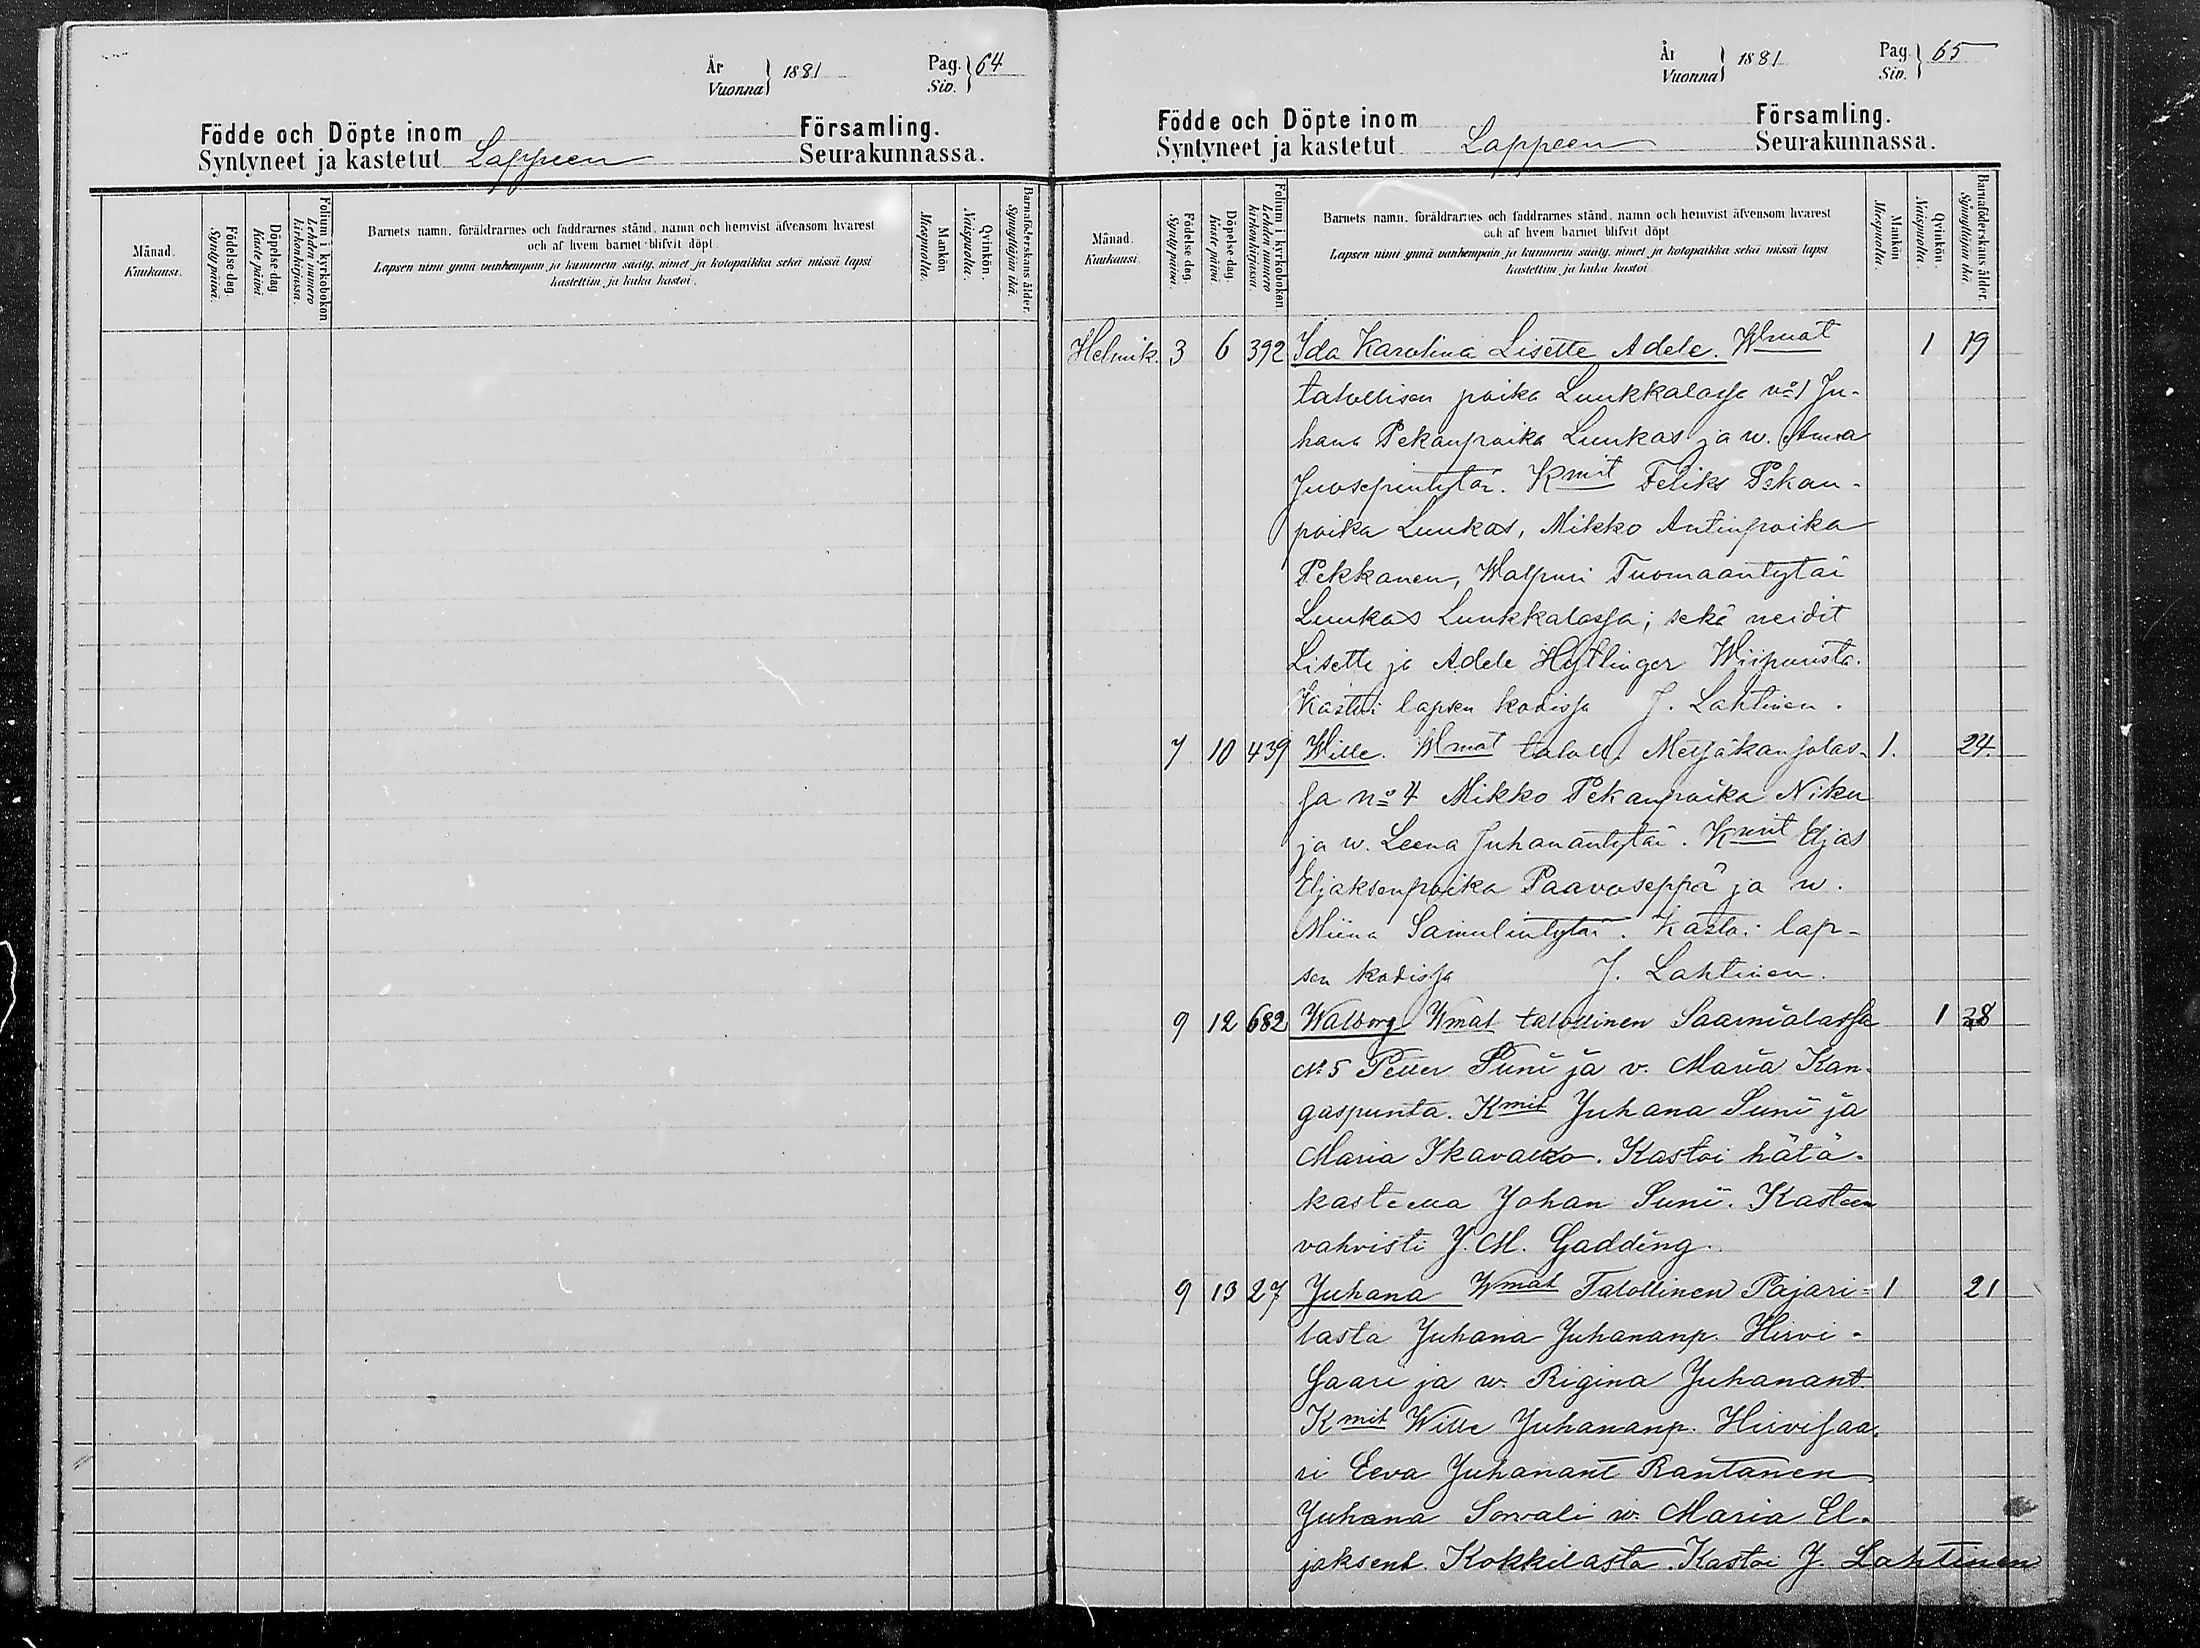 År
Vuonna } 1881
Pag.
Siv. } 64
Födde och Döpte inom Församling.
Syntyneet ja kastetut Lappeen Seurakunnassa.
Månad.
Kuukausi.
Födelse dag.
Synty päivä.
Döpelse dag
Kaste päivä
Folium i kyrkoboken
Lehden numero
kirkonkirjassa.
Barnets namn, föräldrarnes och faddrarnes stånd, namn och hemvist äfvensom hvarest
och af hvem barnet blifvit döpt
Lapsen nimi ynnä vanhempain ja kummein sääty, nimet ja kotopaikka sekä missä lapsi
kastettiin ja kuka kastoi.
Mankön
Miespuolta.
Qvinkön.
Naispuolta.
Barnaföderskans ålder.
Synnyttäjän ikä.
År
Vuonna } 1881
Pag.
Siv. } 65
Födde och Döpte inom Församling.
Syntyneet ja kastetut Lappeen Seurakunnassa.
Månad.
Kuukausi
Födelse dag.
Synty päivä.
Döpelse dag.
Kaste päivä
Folium i kyrkoboken
Lehden numero
kirkonkirjassa.
Barnets namn, föräldrarnes och faddrarnes stånd, namn och hemvist äfvensom hvarest
och af hvem barnet blifvit döpt
Lapsen nimi ynnä vanhempain ja kummein sääty, nimet ja kotopaikka sekä missä lapsi
kastettiin ja kuka kastoi
Mankön
Miespuolta.
Qvinkön.
Naispuolta.
Barnaföderskans ålder.
Synnyttäjän ikä.
Helmik. 3 6 392 Ida Karolina Lisette Adele. Wmat 1 19
talollisen poika Luukkalassa no 1 Ju-
hana Pekanpoika Luukas ja w. Anna
Juosepintytär. Kmit Feliks Pekan-
poika Luukas, Mikko Antinpoika
Pekkanen, Walpuri Tuomaantytär
Luukas Luukkalassa; sekä neidit
Lisette ja Adele Wiipurista.
Kastoi lapsen kodissa J. Lahtinen.
7 10 439 Wille. Wmat taloll. Metsäkansolas- 1. 24.
sa no 4 Mikko Pekanpoika Niku
ja w. Leena Juhanantytär. Kmit Eljas
Eljaksenpoika Paavoseppä ja w.
Miina Samulintytär. Kastoi lap-
sen kodissa J. Lahtinen.
9 12 682 Walborg Wmat talollinen Saamialassa 1 38
No 5 Petter Suni ja v. Maria Kan-
gaspunta. Kmit Juhana Suni ja
Maria Ikavalko. Kastoi hätä-
kasteella Johan Suni. Kasteen
vahvisti J. M. Gadding.
9 13 27 Juhana Wmat Talollinen Pajari- 1 21
lasta Juhana Juhananp. Hirvi-
saari ja w. Rigina Juhanant.
Kmit Wille Juhananp. Hirvisaa-
ri Eeva Juhanant Rantanen
Juhana Sorvali w. Maria El-
jaksent. Kokkilasta. Kastoi J. Lahtinen